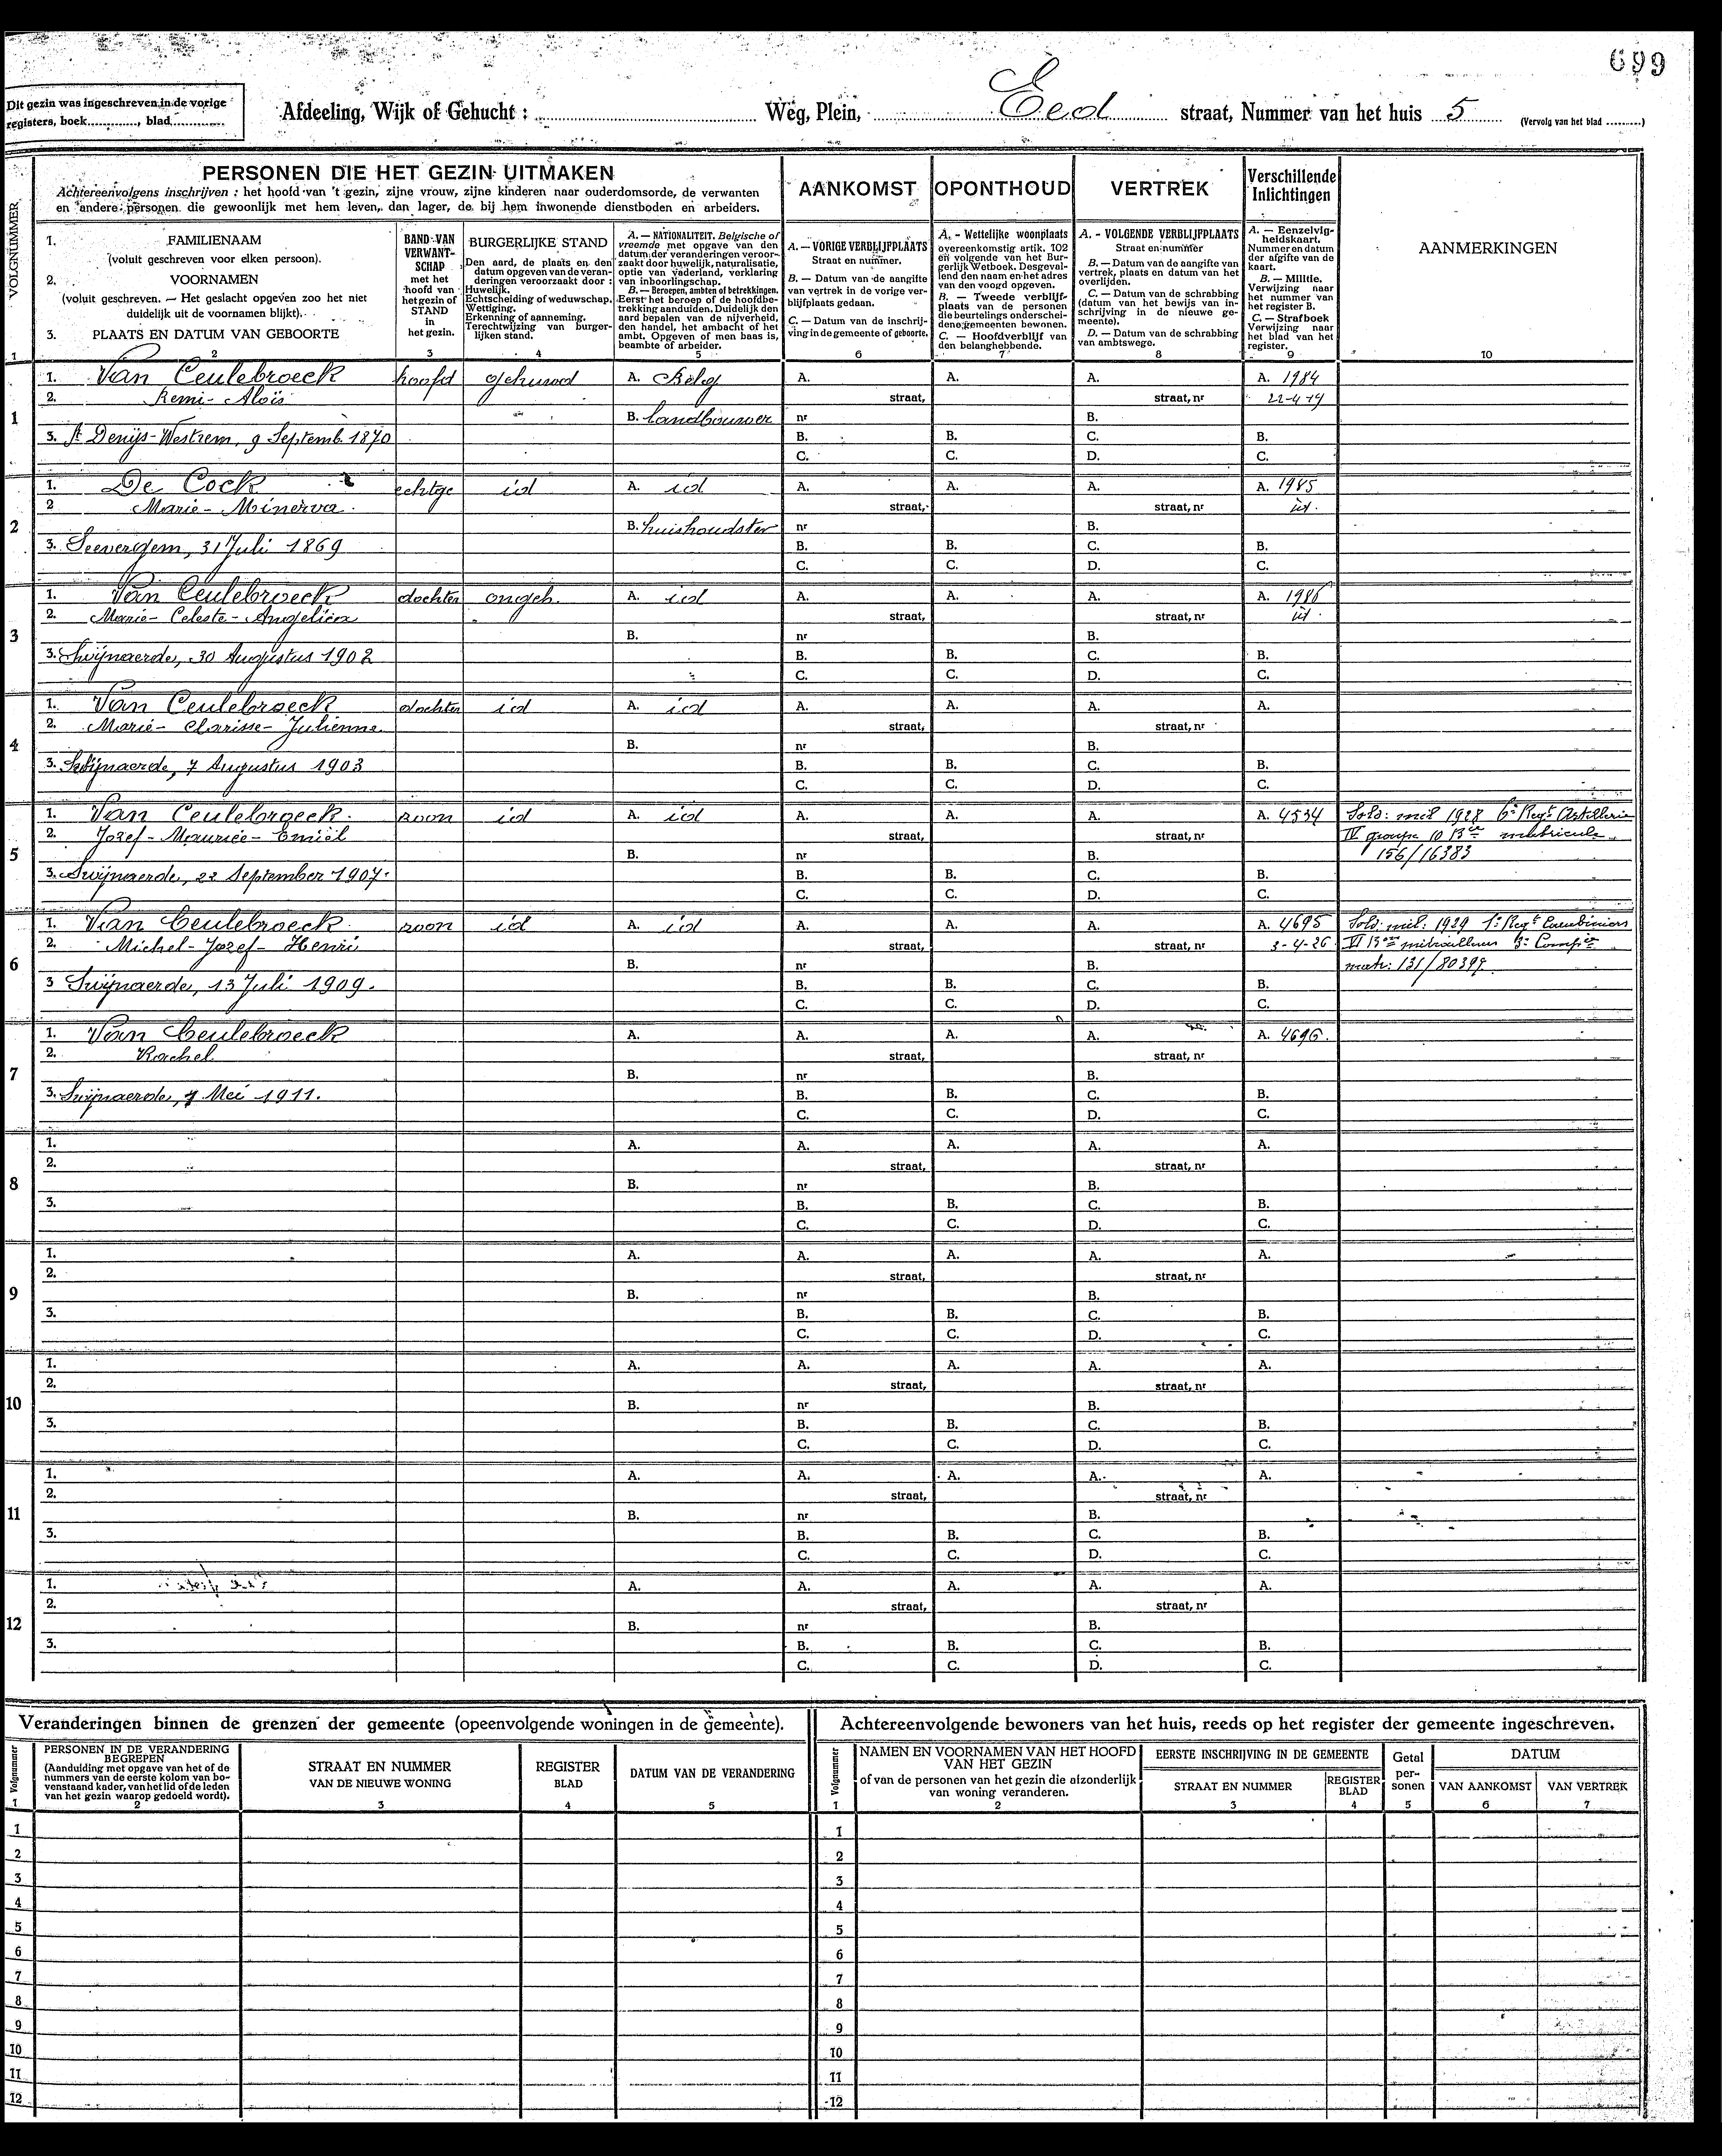 699
Dit gezin was ingeschreven in de vorige
registers, boek............, blad............
Afdeeling, Wijk of Gehucht : ............ Weg, Plein, ............ Eed ............ straat, Nummer van het huis ... 5 ......
(Vervolg van het blad .........)
PERSONEN DIE HET GEZIN UITMAKEN
Achtereenvolgens inschrijven : het hoofd van 't gezin, zijne vrouw, zijne kinderen naar ouderdomsorde, de verwanten
en andere personen die gewoonlijk met hem leven, dan lager, de bij hem inwonende dienstboden en arbeiders.
AANKOMST
OPONTHOUD
VERTREK
Verschillende
Inlichtingen
AANMERKINGEN
VOLGNUMMER
1. FAMILIENAAM
(voluit geschreven voor elken persoon).
2. VOORNAMEN
(voluit geschreven. — Het geslacht opgeven zoo het niet
duidelijk uit de voornamen blijkt).
3. PLAATS EN DATUM VAN GEBOORTE
BAND VAN
VERWANT-
SCHAP
met het
hoofd van
het gezin of
STAND
in
het gezin.
BURGERLIJKE STAND
Den aard, de plaats en den
datum opgeven van de veran-
deringen veroorzaakt door :
Huwelijk.
Echtscheiding of weduwschap.
Wettiging.
Erkenning of aanneming.
Terechtwijzing van burger-
lijken stand.
A. — NATIONALITEIT. Belgische of
vreemde met opgave van den
datum der veranderingen veroor-
zaakt door huwelijk, naturalisatie,
optie van vaderland, verklaring
van inboorlingschap.
B. — Beroepen, ambten of betrekkingen.
Eerst het beroep of de hoofdbe-
trekking aanduiden. Duidelijk den
aard bepalen van de nijverheid,
den handel, het ambacht of het
ambt. Opgeven of men baas is,
beambte of arbeider.
A. — VORIGE VERBLIJFPLAATS
Straat en nummer.
B. — Datum van de aangifte
van vertrek in de vorige ver-
blijfplaats gedaan.
C. — Datum van de inschrij-
ving in de gemeente of geboorte.
A. - Wettelijke woonplaats
overeenkomstig artik. 102
en volgende van het Bur-
gerlijk Wetboek. Desgeval-
lend den naam en het adres
van den voogd opgeven.
B. — Tweede verblijf-
plaats van de personen
die beurtelings onderschei-
dene gemeenten bewonen.
C. — Hoofdverblijf van
den belanghebbende.
A. - VOLGENDE VERBLIJFPLAATS
Straat en nummer
B. — Datum van de aangifte van
vertrek, plaats en datum van het
overlijden.
C. — Datum van de schrabbing
(datum van het bewijs van in-
schrijving in de nieuwe ge-
meente).
D. — Datum van de schrabbing
van ambtswege.
A. — Eenzelvig-
heidskaart.
Nummer en datum
der afgifte van de
kaart.
B. — Militie.
Verwijzing naar
het nummer van
het register B.
C. — Strafboek
Verwijzing naar
het blad van het
register.
1 2 3 4 5 6 7 8 9 10
1. Van Ceulebroeck hoofd gehuwd A. Belg A. A. A. A. 1984
2. Remi - Aloïs straat, straat, nr 22-4-19
1 B. landbouwer nr B.
3. St Denijs-Westrem, 9 Septemb. 1870 B. B. C. B.
C. C. D. C.
1. De Cock echtge id A. id A. A. A. A. 1985
2 Marie - Minerva. straat, straat, nr id.
2 B. huishoudster nr B.
3. Seevergem, 31 Juli 1869 B. B. C. B.
C. C. D. C.
1. Van Ceulebroeck dochter ongeh. A. id A. A. A. A. 1986
2. Marie - Celeste - Angelica straat, straat, nr id.
3 B. nr B.
3. Swijnaerde, 30 Augustus 1902 B. B. C. B.
C. C. D. C.
1. Van Ceulebroeck dochter id A. id A. A. A. A.
2. Marie - Clarisse - Julienne straat, straat, nr
4 B. nr B.
3. Swijnaerde, 7 Augustus 1903 B. B. C. B.
C. C. D. C.
1. Van Ceulebroeck. zoon id A. id A. A. A. A. 4534 Sold: mil 1928 6e Regt Artillerie
2. Jozef - Maurice - Emiël straat, straat, nr IV groupe 10 Bie matricule
5 B. nr B. 156/16383
3. Swijnaerde, 22 September 1907. B. B. C. B.
C. C. D. C.
1. Van Ceulebroeck. zoon id A. id A. A. A. A. 4695 Sold. mil: 1929 1e Regt
2. Michel - Jozef - Henri straat, straat, nr 3-4-26
6 B. nr B. matr: 131/80399
3 Swijnaerde, 13 Juli 1909. B. B. C. B.
C. C. D. C.
1. Van Ceulebroeck A. A. A. A. A. 4696.
2. Rachel straat, straat, nr
7 B. nr B.
3. Swijnaerde, 7 Mei 1911. B. B. C. B.
C. C. D. C.
1. A. A. A. A. A.
2. straat, straat, nr
8 B. nr B.
3. B. B. C. B.
C. C. D. C.
1. A. A. A. A. A.
2. straat, straat, nr
9 B. nr B.
3. B. B. C. B.
C. C. D. C.
1. A. A. A. A. A.
2. straat, straat, nr
10 B. nr B.
3. B. B. C. B.
C. C. D. C.
1. A. A. A. A. A.
2. straat, straat, nr
11 B. nr B.
3. B. B. C. B.
C. C. D. C.
1. A. A. A. A. A.
2. straat, straat, nr
12 B. nr B.
3. B. B. C. B.
C. C. D. C.
Veranderingen binnen de grenzen der gemeente (opeenvolgende woningen in de gemeente).
Volgnummer
PERSONEN IN DE VERANDERING
BEGREPEN
(Aanduiding met opgave van het of de
nummers van de eerste kolom van bo-
venstaand kader, van het lid of de leden
van het gezin waarop gedoeld wordt).
STRAAT EN NUMMER
VAN DE NIEUWE WONING
REGISTER
BLAD
DATUM VAN DE VERANDERING
1 2 3 4 5
1
2
3
4
5
6
7
8
9
10
11
12
Achtereenvolgende bewoners van het huis, reeds op het register der gemeente ingeschreven.
Volgnummer
NAMEN EN VOORNAMEN VAN HET HOOFD
VAN HET GEZIN
of van de personen van het gezin die afzonderlijk
van woning veranderen.
EERSTE INSCHRIJVING IN DE GEMEENTE
STRAAT EN NUMMER
REGISTER
BLAD
Getal
per-
sonen
DATUM
VAN AANKOMST
VAN VERTREK
1 2 3 4 5 6 7
1
2
3
4
5
6
7
8
9
10
11
12